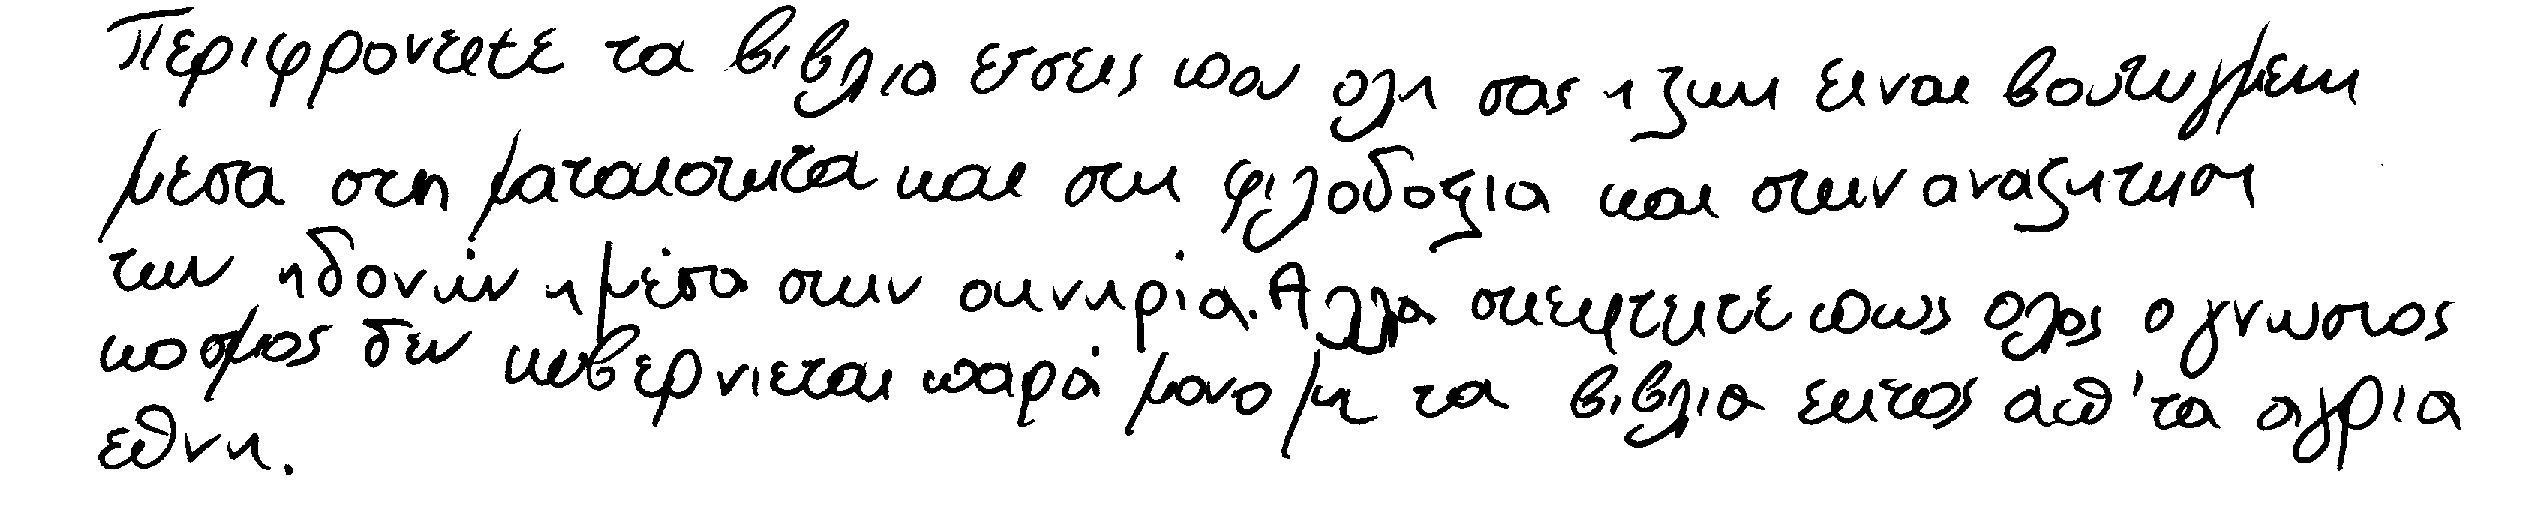 Περιφρονειτε τα βιβλια εσσεις που ολη σας η ζωη ειναι βουτηγμενη
μεσα στη ματαιοτητα και στη φιλοδοξια και στην αναζητηση
των ηδονών η μέσα στην οκνηρία. Αλλά σκεφτειτε πως ολος ο γνωστος
κοσμος δεν κυβερνιεται παρά μονο με τα βιβλια εκτος απ' τα αγρια
εθνη.